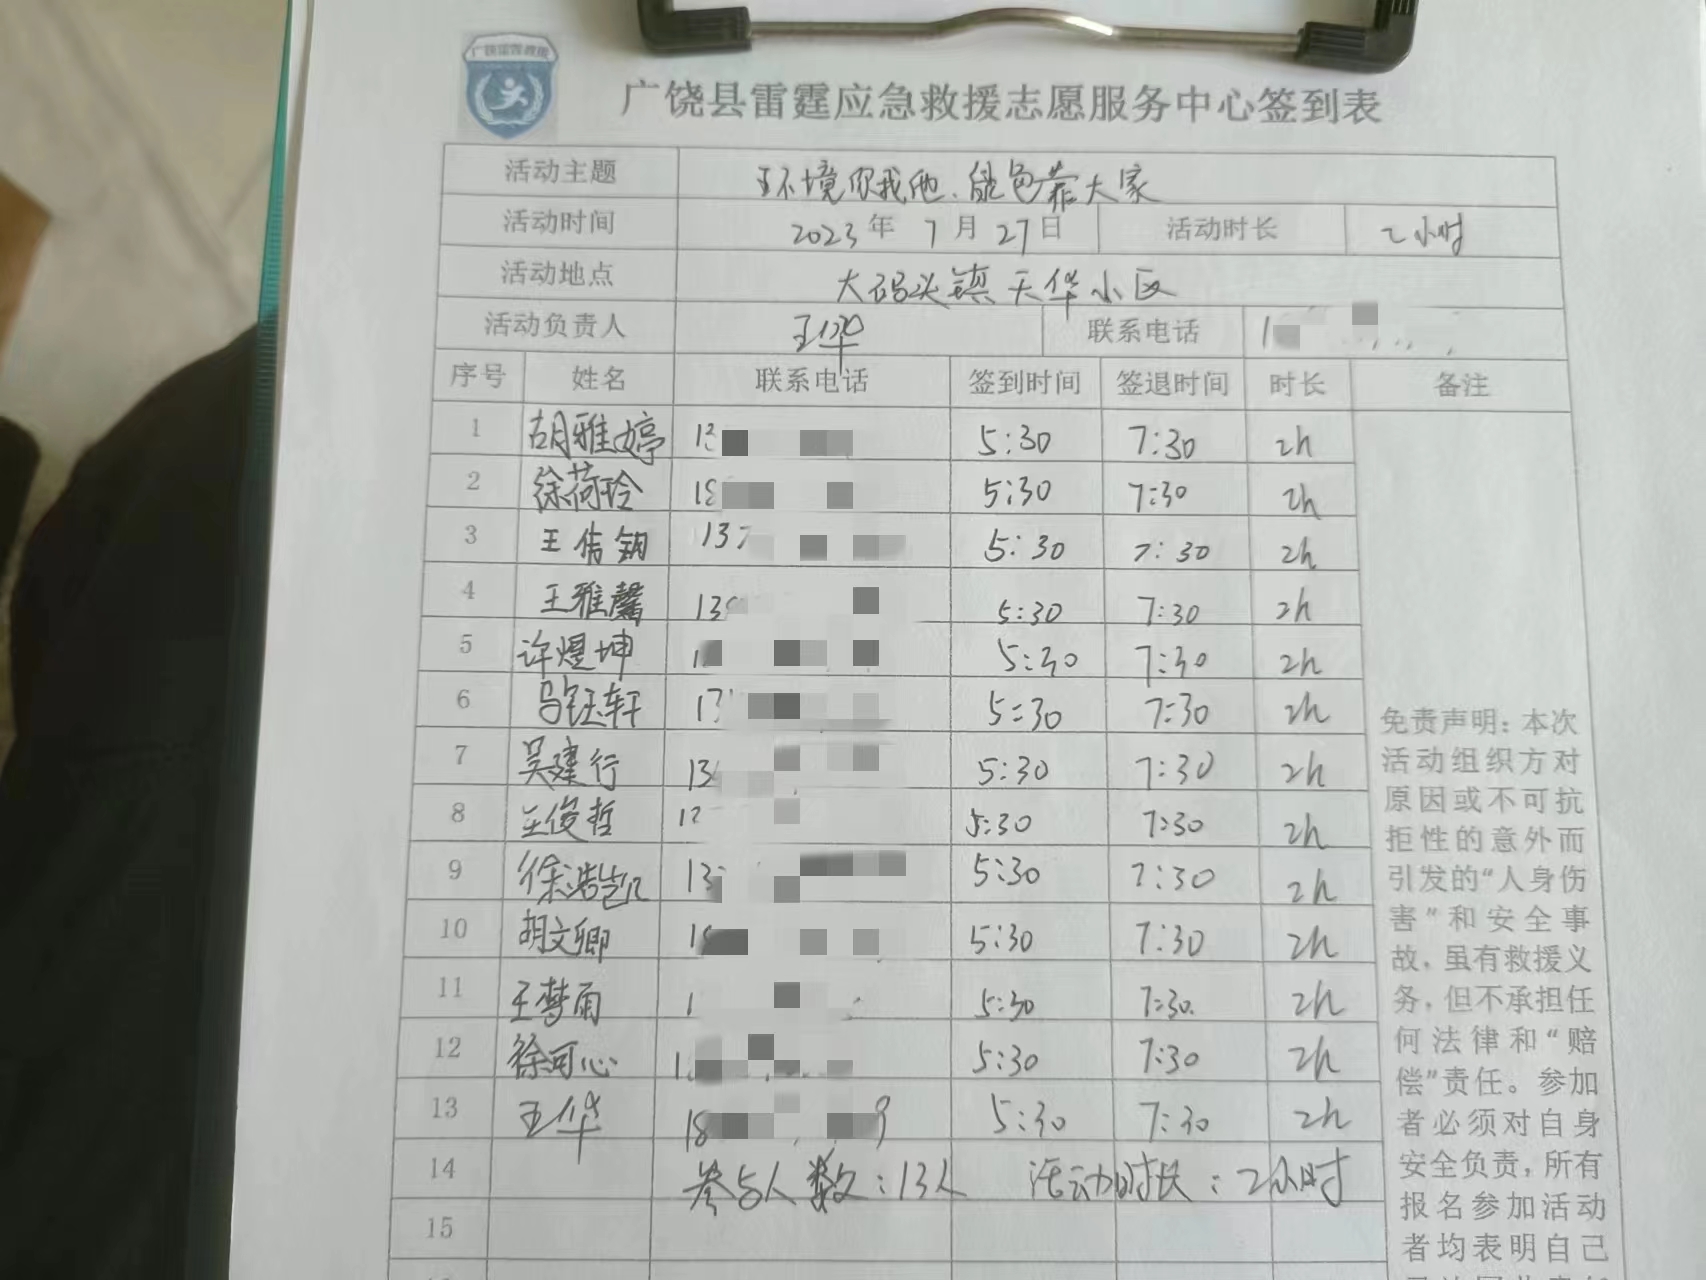 广饶县雷霆应急救援志愿服务中心签到表
活动主题 环境你我他、绿色靠大家
活动时间 2023年 7月 27日 活动时长 2小时
活动地点 大码头镇天华小区
活动负责人 王华 联系电话 1
序号 姓名 联系电话 签到时间 签退时间 时长 备注
1 胡雅婷 13 5:30 7:30 2h
2 徐荷玲 18 5:30 7:30 2h
3 王倩钥 137 5:30 7:30 2h
4 王雅馨 13 5:30 7:30 2h
5 许煜坤 1 5:30 7:30 2h
6 马钰轩 13 5:30 7:30 2h
7 吴建行 13 5:30 7:30 2h
8 王俊哲 1 5:30 7:30 2h
9 徐浩凯 13 5:30 7:30 2h
10 胡文卿 1 5:30 7:30 2h
11 王梦雨 1 5:30 7:30 2h
12 徐可心 1 5:30 7:30 2h
13 王华 18 9 5:30 7:30 2h
14 参与人数:13人 活动时长:2小时
15
免责声明:本次
活动组织方对
原因或不可抗
拒性的意外而
引发的“人身伤
害”和安全事
故,虽有救援义
务,但不承担任
何法律和“赔
偿”责任。参加
者必须对自身
安全负责,所有
报名参加活动
者均表明自己